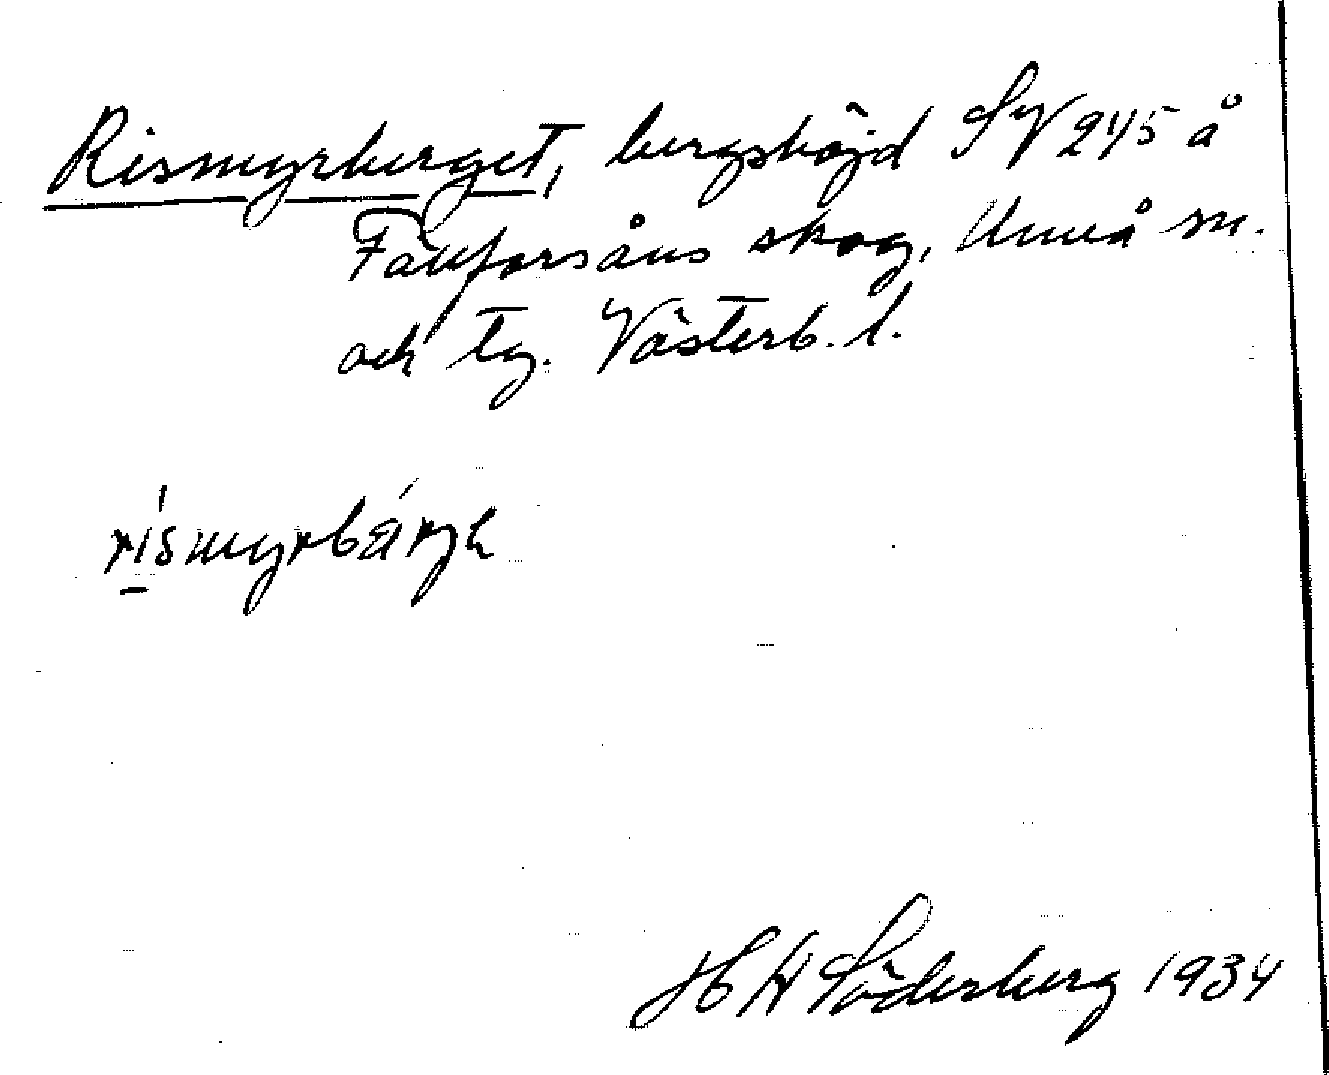 Rismyrberget, bergshöjd SV 245 å
Fällforsåns skog, Umeå sn.
och tg. Västerb. l.
rismyrbärjɛ
H Söderberg 1934